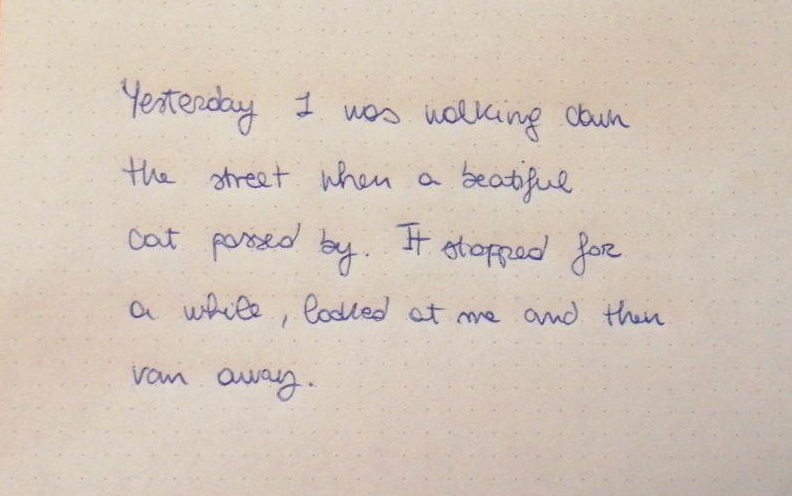 Yesterday I was walking down
the street when a beatiful
cat passed by. It stopped for
a while, looked at me and then
ran away.